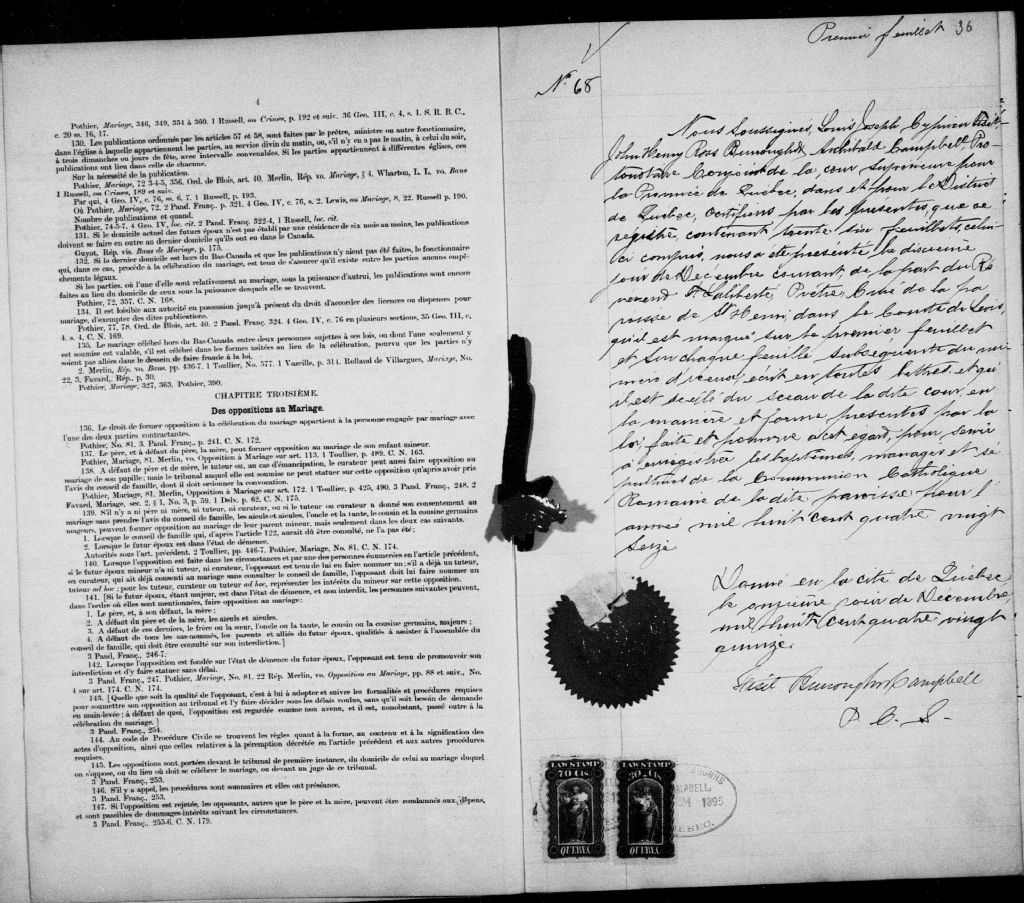 4
Pothier, Mariage, 346, 349, 354 à 360. 1 Russell, on Crimes, p. 192 et suiv. 36 Geo. III, c. 4, s. 1. S. R. B. C.,
c. 20 ss. 16, 17.
130. Les publications ordonnés par les articles 57 et 58, sont faites par le prêtre, ministre ou autre fonctionnaire,
dans l'église à laquelle appartiennent les parties, au service divin du matin, ou, s'il n'y en a pas le matin, à celui du soir,
à trois dimanches ou jours de fête, avec intervalle convenables. Si les parties appartiennent à différentes églises, ces
publications ont lieu dans celle de chacune.
Sur la nécessité de la publication.
Pothier, Mariage, 72 3-4-5, 356, Ord. de Blois, art. 40. Merlin, Rép. vo. Mariage, § 4. Wharton, L. L. vo. Bans
1 Russell, on Crimes, 189 et suiv.
Par qui, 4 Geo. IV, c. 76, ss. 6, 7. 1 Russell, p. 193.
Où Pothier, Mariage, 72. 2 Pand. Franç. p. 321. 4 Geo. IV, c. 76, s. 2. Lewis, on Mariage, 8, 22. Russell p. 190.
Nombre de publications et quand.
Pothier, 74-5-7. 4 Geo. IV, loc. cit. 2 Pand. Franç. 322-4, 1 Russell, loc. cit.
131. Si le domicile actuel des futurs époux n'est pas établi par une résidence de six mois au moins, les publications
doivent se faire en outre au dernier domicile qu'ils ont eu dans le Canada.
Guyot, Rép. vis. Bans de Mariage, p. 175.
132. Si le dernier domicile est hors du Bas-Canada et que les publications n'y aient pas été faites, le fonctionnaire
qui, dans ce cas, procède à la célébration du mariage, est tenu de s'assurer qu'il existe entre les parties aucuns empê-
chements légaux.
Si les parties, où l'une d'elle sont relativement au mariage, sous la puissance d'autrui, les publications sont encore
faites au lieu du domicile de ceux sous la puissance desquels elle se trouvent.
Pothier, 72, 357. C. N. 168.
134. Il est loisible aux autorité en possession jusqu'à présent du droit d'accorder des licences ou dispenses pour
mariage, d'exempter des dites publications.
Pothier, 77, 78. Ord. de Blois, art. 40. 2 Pand. Franç. 324. 4 Geo. IV, c. 76 en plusieurs sections, 35 Geo. III, c,
4. s. 4. C. N. 169.
135. Le mariage célébré hors du Bas-Canada entre deux personnes sujettes à ses lois, ou dont l'une seulement y
est soumise est valable, s'il est célébré dans les formes usitées au lieu de la célébration, pourvu que les parties n'y
soient pas allées dans le dessein de faire fraude à la loi.
2. Merlin, Rép. vo. Bans. pp. 436-7. 1 Toullier, No. 577. 1 Vazeille, p. 314. Rolland de Villargues, Mariage, No.
22, 3, Favard, Rép. p. 30.
Pothier, Mariage, 327, 363. Pothier, 390.
CHAPITRE TROISIÈME.
Des oppositions au Mariage.
136. Le droit de former opposition à la célébration du mariage appartient à la personne engagée par mariage avec
l'une des deux parties contractantes.
Pothier, No. 81. 3. Pand. Franç., p. 241. C. N. 172.
137. Le père, et à défaut du père, la mère, peut former opposition au mariage de son enfant mineur.
Pothier, Mariage, 81. Merlin, vo. Opposition à Mariage sur art. 113. 1 Toullier, p. 489. C. N. 163.
138. A défaut de père et de mère, le tuteur ou, au cas d'émancipation, le curateur peut aussi faire opposition au
mariage de son pupille; mais le tribunal auquel elle est soumise ne peut statuer sur cette opposition qu'après avoir pris
l'avis du conseil de famille, dont il doit ordonner la convocation.
Pothier, Mariage, 81. Merlin, Opposition à Mariage sur art. 172. 1 Toullier, p. 425, 490. 3 Pand. Franç., 248. 2
Favard, Mariage, sec. 2, § 1, No. 3, p. 59. 1 Delv. p. 62. C. N. 175.
139. S'il n'y a ni père ni mère, ni tuteur, ni curateur, ou si le tuteur ou curateur a donné son consentement au
mariage sans prendre l'avis du conseil de famille, les aïeuls et aïeules, l'oncle et la tante, le cousin et la cousine germains
majeurs, peuvent former opposition au mariage de leur parent mineur, mais seulement dans les deux cas suivants.
1. Lorsque le conseil de famille qui, d'après l'article 122, aurait dû être consulté, ne l'a pas été;
2. Lorsque le futur époux est dans l'état de démence.
Autorités sous l'art. précédent. 2 Toullier, pp. 446-7. Pothier, Mariage, No. 81. C. N. 174.
140. Lorsque l'opposition est faite dans les circonstances et par une des personnes énumérées en l'article précédent,
si le futur époux mineur n'a ni tuteur, ni curateur, l'opposant est tenu de lui en faire nommer un; s'il a déjà un tuteur,
ou curateur, qui ait déjà consenti au mariage sans consulter le conseil de famille, l'opposant doit lui faire nommer un
tuteur ad hoc; pour les tuteur, curateur ou tuteur ad hoc, représenter les intérêts du mineur sur cette opposition.
141. [Si le futur époux, étant majeur, est dans l'état de démence, et non interdit, les personnes suivantes peuvent,
dans l'ordre où elles sont mentionnées, faire opposition au mariage:
1. Le père, et, à son défaut, la mère;
2. A défaut du père et de la mère, les aïeuls et aïeules.
3. A défaut de ces derniers, le frère ou la sœur, l'oncle ou la tante, le cousin ou la cousine germains, majeurs;
4. A défaut de tous les sus-nommés, les parents et alliés du futur époux, qualifiés à assister à l'assemblée du
conseil de famille, qui doit être consulté sur son interdiction.]
3 Pand, Franç., 246-7.
142. Lorsque l'opposition est fondée sur l'état de démence du futur époux, l'opposant est tenu de promouvoir son
interdiction et d'y faire statuer sans délai.
3 Pand. Franç., 247. Pothier, Mariage, No. 81. 22 Rép. Merlin, vo. Opposition au Mariage, pp. 88 et suiv., No.
4 sur art. 174. C. N. 174.
143. [Quelle que soit la qualité de l'opposant, c'est à lui à adopter et suivre les formalités et procédures requises
pour soumettre son opposition au tribunal et l'y faire décider sous les délais voulus, sans qu'il soit besoin de demande
en main-levée; à défaut de quoi, l'opposition est regardée comme non avenu, et il est, nonobstant, passé outre à la
célébration du mariage.]
3 Pand. Franç., 254.
144. Au code de Procédure Civile se trouvent les règles quant à la forme, au contenu et à la signification des
actes d'opposition, ainsi que celles relatives à la péremption décrétée en l'article précédent et aux autres procédures
requises.
145. Les oppositions sont portées devant le tribunal de première instance, du domicile de celui au mariage duquel
on s'oppose, ou du lieu où doit se célébrer le mariage, ou devant un juge de ce tribunal.
3 Pand. Franç., 253.
146. S'il y a appel, les procédures sont sommaires et elles ont préséance.
3 Pand. Franç., 253.
147. Si l'opposition est rejetée, les opposants, autres que le père et la mère, peuvent être condamnés aux dépens,
et sont passibles de dommages-intérêts suivant les circonstances.
3 Pand. Franç., 255-6. C. N. 179.
Premier feuillet 36
No 68
Nous Soussignés, Louis Joseph Cyprien Fiset
John Henry Ross Burroughs & Archibald Campbell Pro-
tonotaire Conjoint de la cour supérieure pour
la Province de Québec, dans et pour le District
de Québec, certifions par les présentes, que ce
registre, contenant trente six feuillets, celui
ici compris, nous a été présenté le dixième
jour de Décembre courant de la part du Ré
vérend Laliberté, Prêtre, Curé de la pa
roisse de St Henri dans le Comté de Lévis,
qu'il est marqué sur le premier feuillet
et sur chaque feuille subséquente du nu-
méro d'icelui, écrit en toutes lettres, et qu'
il est scellé du sceau de la dite cour, en
la manière et forme présentes par la
loi, faite et pourvue à cet égard, pour servir
à enregistrer les baptêmes, mariages et sé
pultures de la Communion Catholique
Romaine de la dite paroisse pour l'
année mil huit cent quatre vingt
Seize
Donné en la cité de Québec
le onzième jour de Décembre
mil huit cent quatre vingt
quinze.
Fiset Burroughs & Campbell
P. C. S.
LAW STAMP
70 Cts
QUEBEC
LAW STAMP
30 Cts
QUEBEC
24 1895